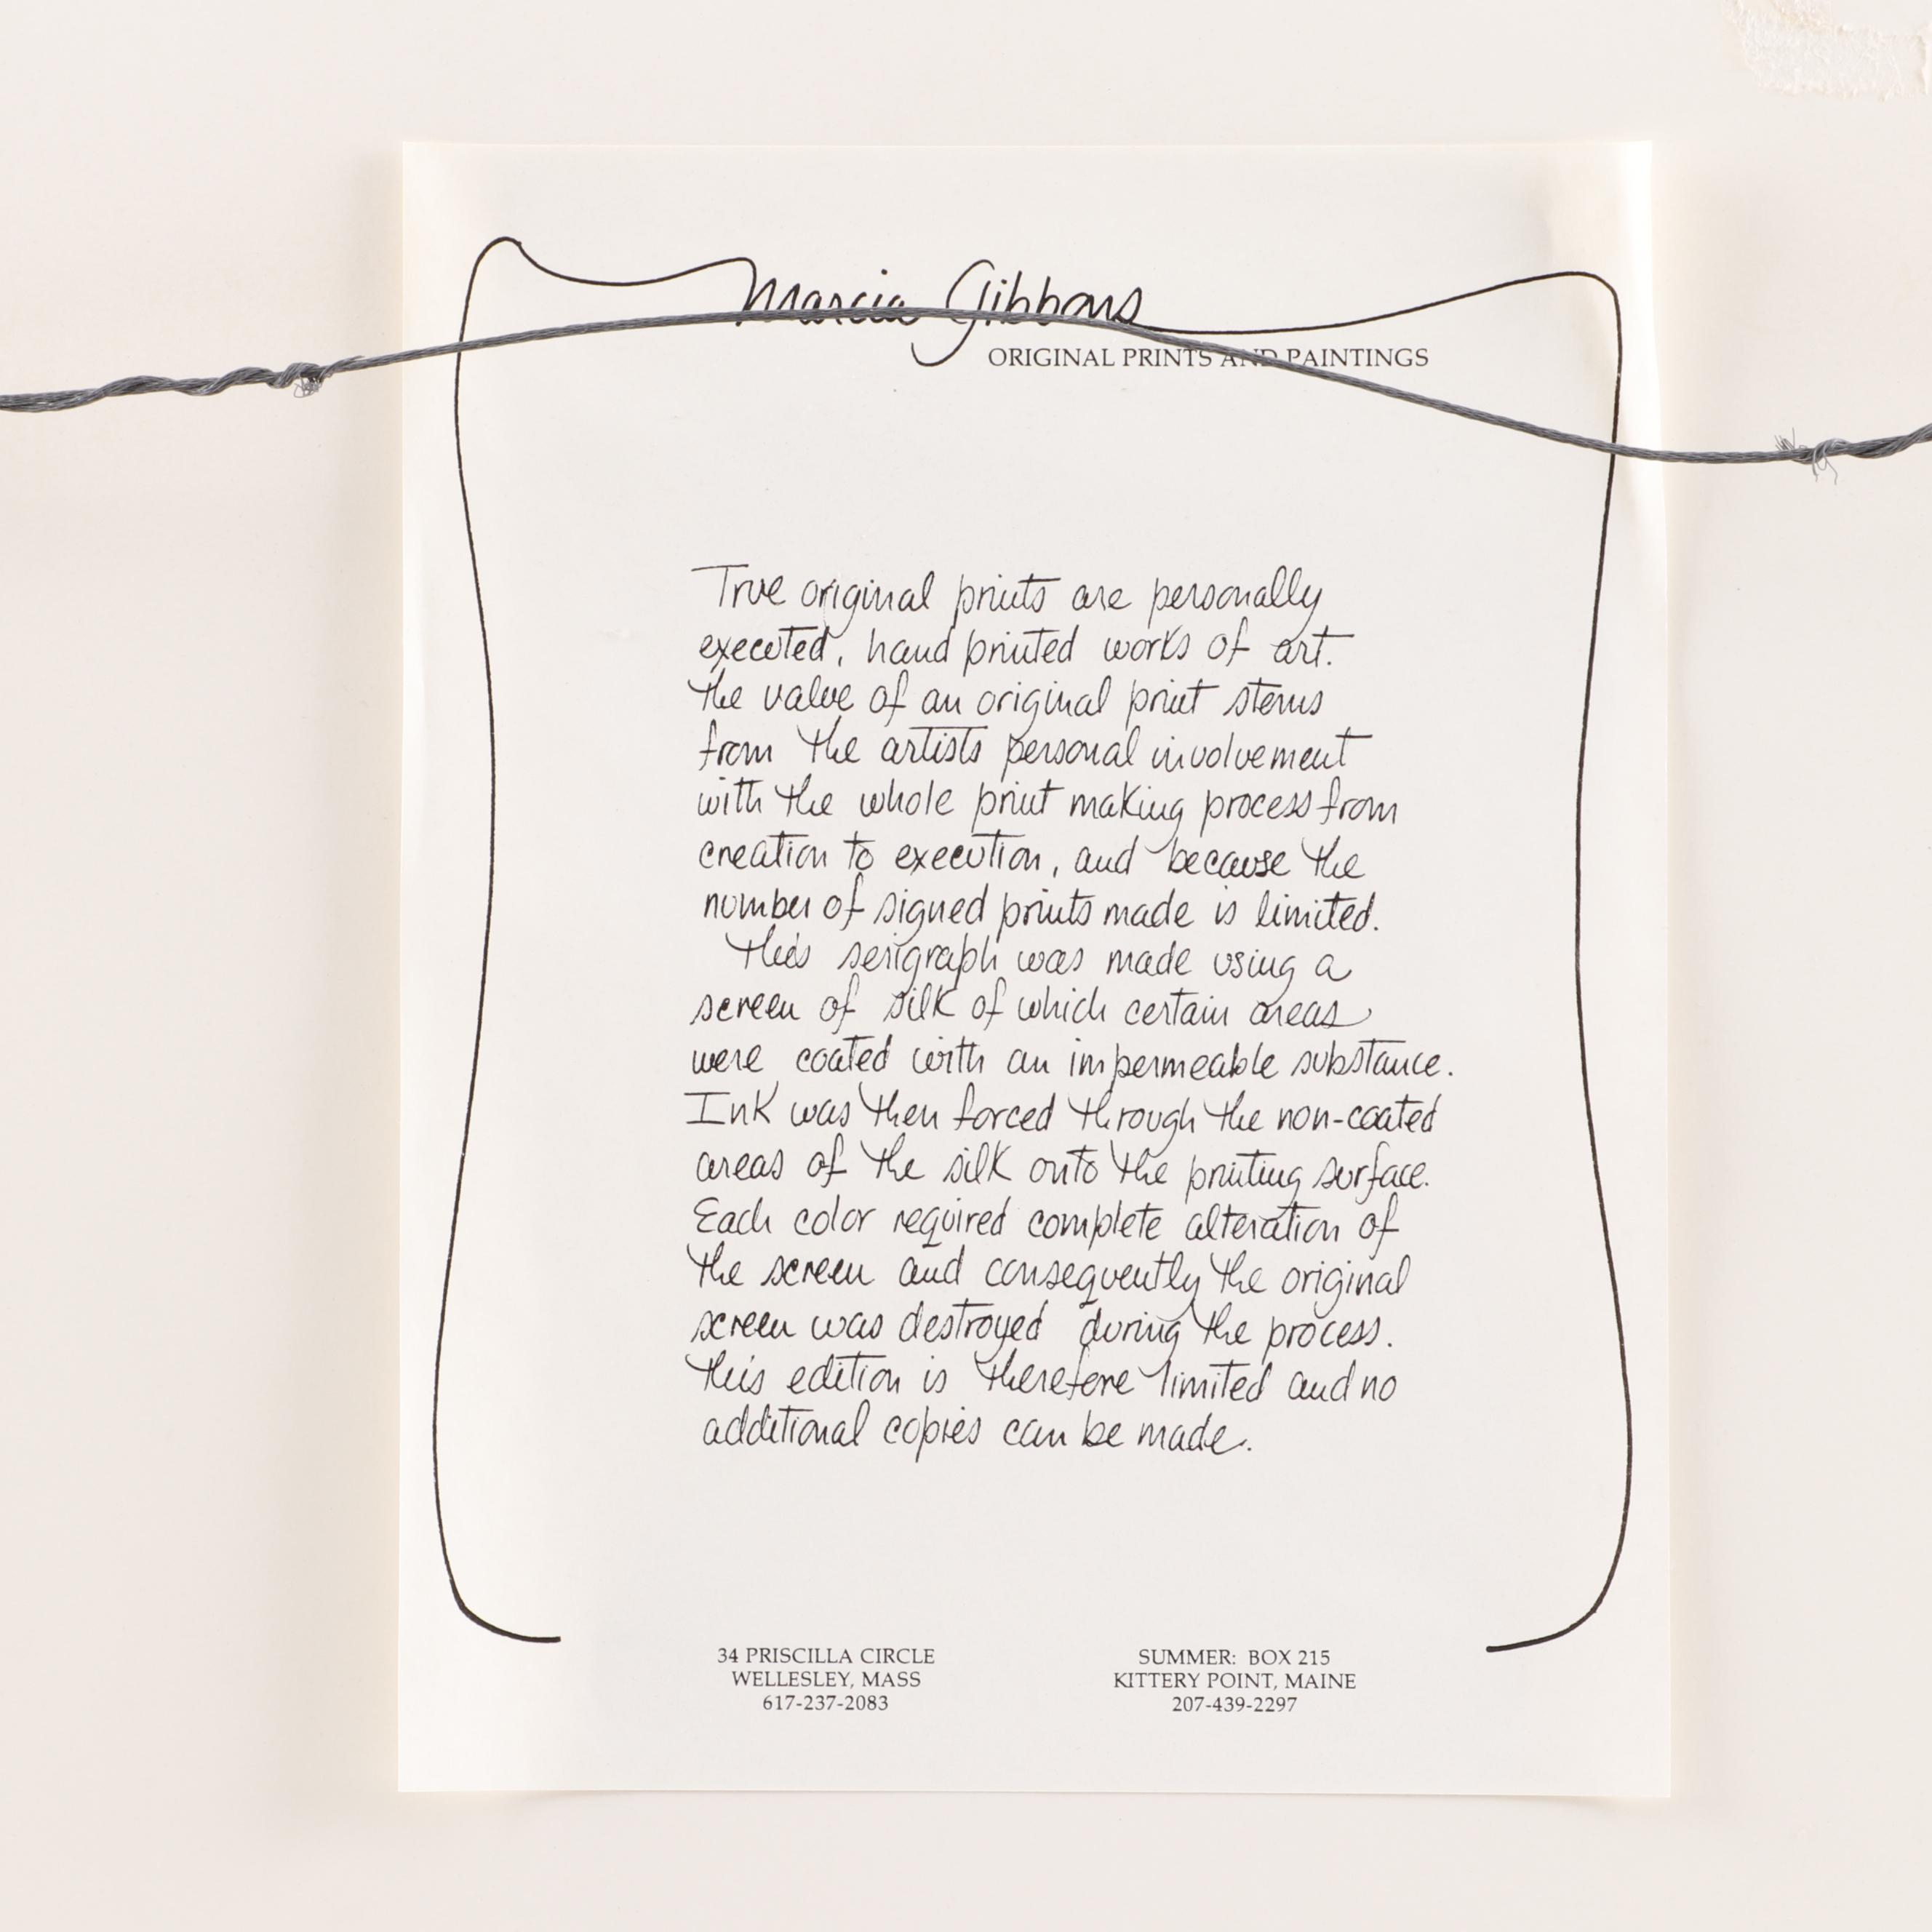 Marcia Gibbons
ORIGINAL PRINTS AND PAINTINGS
True original prints are personally
executed, hand printed works of art.
The value of an original print stems
from the artists personal involvement
with the whole print making process from
creation to execution, and because the
number of signed prints made is limited.
This serigraph was made using a
screen of silk of which certain areas
were coated with an impermeable substance.
Ink was then forced through the non-coated
areas of the silk onto the printing surface.
Each color required complete alteration of
the screen and consequently the original
screen was destroyed during the process.
This edition is therefore limited and no
additional copies can be made.
34 PRISCILLA CIRCLE
WELLESLEY, MASS
617-237-2083
SUMMER: BOX 215
KITTERY POINT, MAINE
207-439-2297